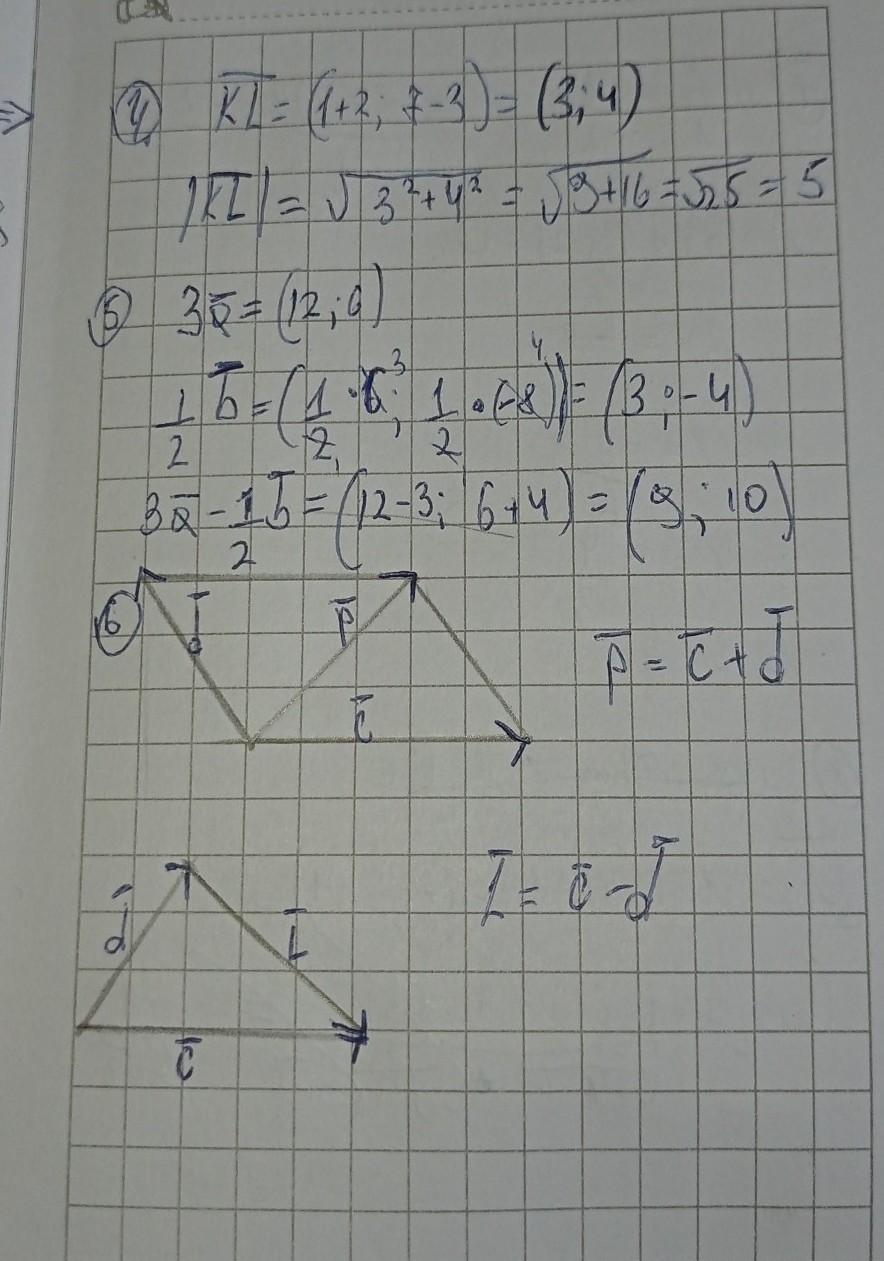 ④ KL̅ = (1+2; 7-3) = (3; 4)
|KL̅| = √3²+4² = √9+16 = √25 = 5
⑤ 3a̅ = (12; 6)
1/2 b̅ = (1/2 · 6; 1/2 · (-8)) = (3; -4)
3a̅ - 1/2 b̅ = (12-3; 6+4) = (9; 10)
⑥ d̅ p̅ c̅
p̅ = c̅ + d̅
d̅ L̅ c̅
L̅ = c̅ - d̅